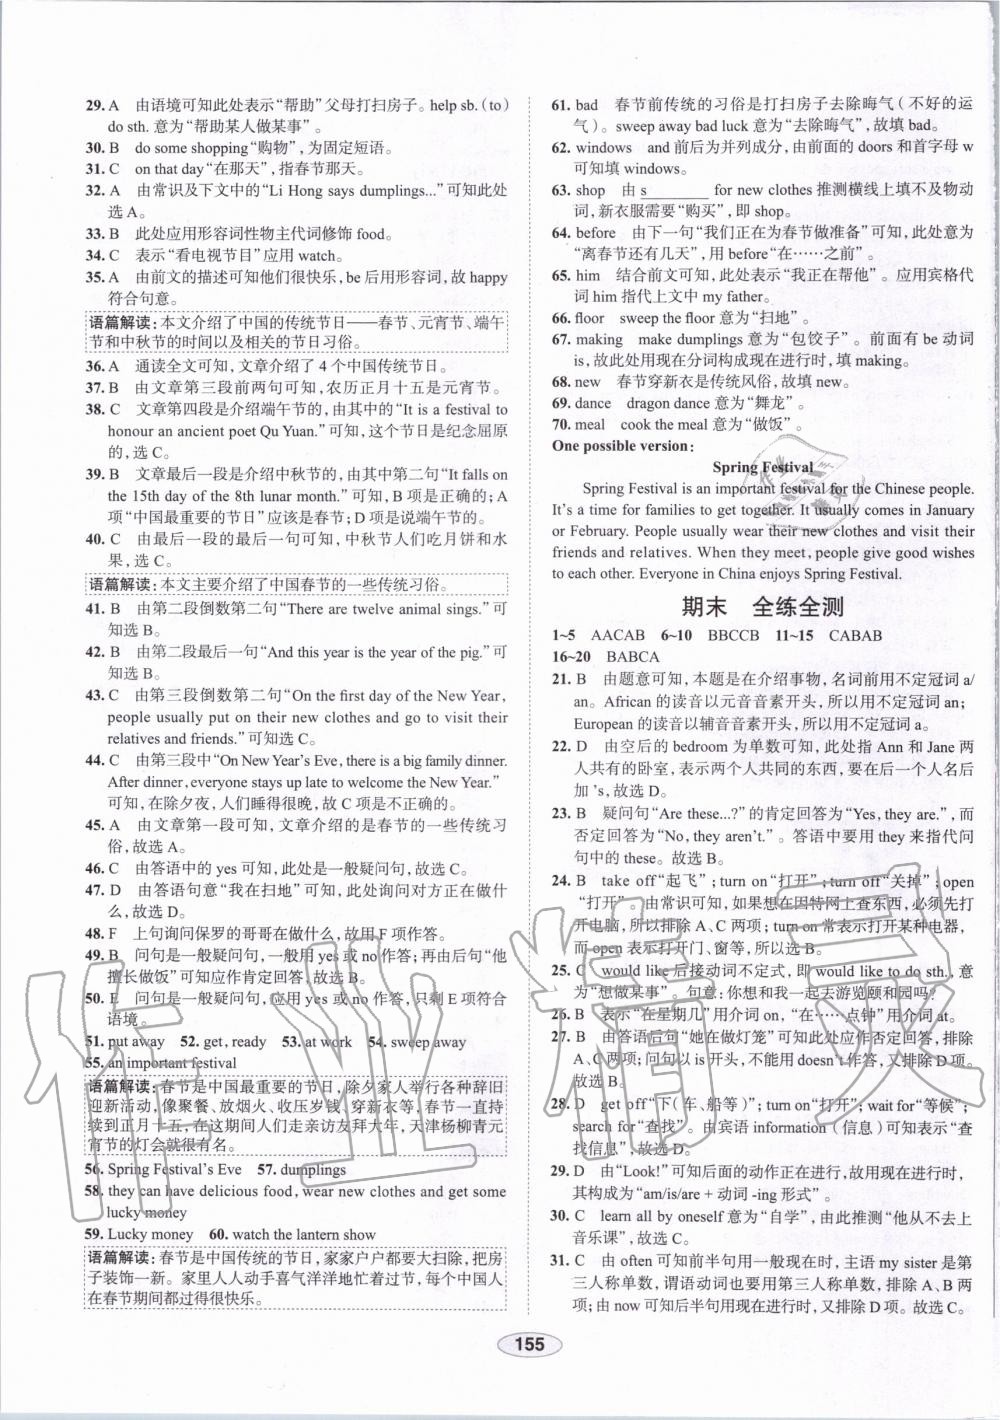 29. A 由语境可知此处表示“帮助”父母打扫房子。help sb.(to)
do sth. 意为“帮助某人做某事”。
30. B do some shopping“购物”,为固定短语。
31. C on that day“在那天”,指春节那天。
32. A 由常识及下文中的“Li Hong says dumplings...”可知此处
选A。
33. B 此处应用形容词性物主代词修饰 food。
34. C 表示“看电视节目”应用 watch。
35. A 由前文的描述可知他们很快乐,be 后用形容词,故 happy
符合句意。
语篇解读:本文介绍了中国的传统节日——春节、元宵节、端午
节和中秋节的时间以及相关的节日习俗。
36. A 通读全文可知,文章介绍了 4 个中国传统节日。
37. B 由文章第三段前两句可知,农历正月十五是元宵节。
38. C 文章第四段是介绍端午节的,由其中的“It is a festival to
honour an ancient poet Qu Yuan.”可知,这个节日是纪念屈原
的,选C。
39. B 文章最后一段是介绍中秋节的,由其中第二句“It falls on
the 15th day of the 8th lunar month.”可知,B项是正确的;A
项“中国最重要的节日”应该是春节;D项是说端午节的。
40. C 由最后一段的最后一句可知,中秋节人们吃月饼和水
果,选C。
语篇解读:本文主要介绍了中国春节的一些传统习俗。
41. B 由第二段倒数第二句“There are twelve animal sings.”可
知选B。
42. B 由第二段最后一句“And this year is the year of the pig.”可
知选B。
43. C 由第三段倒数第二句“On the first day of the New Year,
people usually put on their new clothes and go to visit their
relatives and friends.”可知选C。
44. C 由第三段中“On New Year's Eve, there is a big family dinner.
After dinner, everyone stays up late to welcome the New Year.”
可知,在除夕夜,人们睡得很晚,故C项是不正确的。
45. A 由文章第一段可知,文章介绍的是春节的一些传统习
俗,故选A。
46. C 由答语中的 yes 可知,此处是一般疑问句,故选C。
47. D 由答语句意“我在扫地”可知,此处询问对方正在做什
么,故选D。
48. F 上句询问保罗的哥哥在做什么,故用F项作答。
49. B 问句是一般疑问句,一般用 yes 或 no 回答;再由后句“他
擅长做饭”可知应作肯定回答,故选B。
50. E 问句是一般疑问句,应用 yes 或 no 作答,只剩E项符合
语境。
51. put away 52. get, ready 53. at work 54. sweep away
55. an important festival
语篇解读:春节是中国最重要的节日,除夕家人举行各种辞旧
迎新活动,像聚餐、放烟火、收压岁钱、穿新衣等,春节一直持
续到正月十五,在这期间人们走亲访友拜大年,天津杨柳青元
宵节的灯会就很有名。
56. Spring Festival's Eve 57. dumplings
58. they can have delicious food, wear new clothes and get some
lucky money
59. Lucky money 60. watch the lantern show
语篇解读:春节是中国传统的节日,家家户户都要大扫除,把房
子装饰一新。家里人人动手喜气洋洋地忙着过节,每个中国人
在春节期间都过得很快乐。
61. bad 春节前传统的习俗是打扫房子去除晦气(不好的运
气)。sweep away bad luck 意为“去除晦气”,故填 bad。
62. windows and 前后为并列成分,由前面的 doors 和首字母 w
可知填 windows。
63. shop 由 s________ for new clothes 推测横线上填不及物动
词,新衣服需要“购买”,即 shop。
64. before 由下一句“我们正在为春节做准备”可知,此处意为
“离春节还有几天”,用 before“在……之前”。
65. him 结合前文可知,此处表示“我正在帮他”。应用宾格代
词 him 指代上文中 my father。
66. floor sweep the floor 意为“扫地”。
67. making make dumplings 意为“包饺子”。前面有 be 动词
is,故此处用现在分词构成现在进行时,填 making。
68. new 春节穿新衣是传统风俗,故填 new。
69. dance dragon dance 意为“舞龙”。
70. meal cook the meal 意为“做饭”。
One possible version:
Spring Festival
Spring Festival is an important festival for the Chinese people.
It's a time for families to get together. It usually comes in January
or February. People usually wear their new clothes and visit their
friends and relatives. When they meet, people give good wishes
to each other. Everyone in China enjoys Spring Festival.
期末 全练全测
1~5 AACAB 6~10 BBCCB 11~15 CABAB
16~20 BABCA
21. B 由题意可知,本题是在介绍事物,名词前用不定冠词 a/
an。African 的读音以元音音素开头,所以用不定冠词 an;
European 的读音以辅音音素开头,所以用不定冠词 a。
22. D 由空后的 bedroom 为单数可知,此处指 Ann 和 Jane 两
人共有的卧室,表示两个人共同的东西,要在后一个人名后
加 's,故选D。
23. B 疑问句“Are these...?”的肯定回答为“Yes, they are.”,而
否定回答为“No, they aren't.”。答语中要用 they 来指代问
句中的 these。故选B。
24. B take off“起飞”;turn on“打开”;turn off“关掉”;open
“打开”。由常识可知,如果想在因特网上查东西,必须先打
开电脑,所以排除 A、C 两项;turn on 常表示打开某种电器,
而 open 表示打开门、窗等,所以选B。
25. C would like 后接动词不定式,即 would like to do sth.,意
为“想做某事”。句意:你想和我一起去游览颐和园吗?
26. B 表示“在星期几”用介词 on,“在……点钟”用介词 at。
27. B 由答语后句“她在做灯笼”可知此处应作否定回答,排除
A、C 两项;问句以 is 开头,不能用 doesn't 作答,又排除D项。
故选B。
28. D get off“下(车、船等)”;turn on“打开”;wait for“等候”;
search for“查找”。由宾语 information(信息)可知应表示“查
找信息”,故选D。
29. D 由“Look!”可知后面的动作正在进行,故用现在进行时,
其构成为“am/is/are + 动词 -ing 形式”。
30. C learn all by oneself 意为“自学”,由此推测“他从不去上
音乐课”,故选C。
31. C 由 often 可知前半句用一般现在时,主语 my sister 是第
三人称单数,谓语动词也要用第三人称单数,排除 A、B 两
项;由 now 可知后半句用现在进行时,又排除D项。故选C。
155
作业精灵